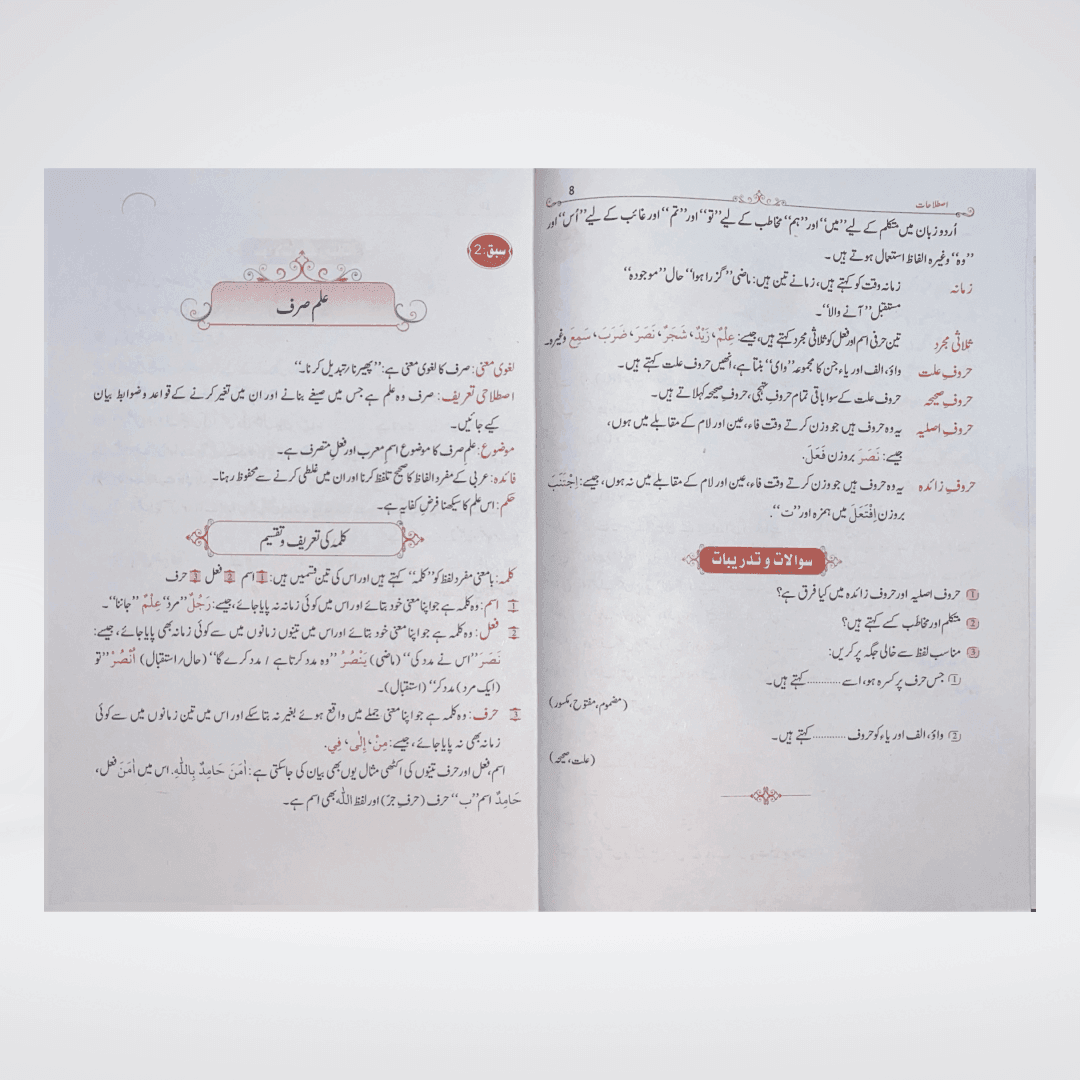 اصطلاحات
8
اُردو زبان میں متکلم کے لیے ’’میں‘‘ اور ’’ہم‘‘ مخاطب کے لیے ’’تو‘‘ اور ’’تم‘‘ اور غائب کے لیے ’’اُس‘‘ اور
’’وہ‘‘ وغیرہ الفاظ استعمال ہوتے ہیں۔
زمانہ زمانہ وقت کو کہتے ہیں، زمانے تین ہیں: ماضی ’’گزرا ہوا‘‘ حال ’’موجودہ‘‘
مستقبل ’’آنے والا‘‘۔
ثلاثی مجرد تین حرفی اسم اور فعل کو ثلاثی مجرد کہتے ہیں، جیسے: عِلْمٌ، زَيْدٌ، شَجَرٌ، نَصَرَ، ضَرَبَ، سَمِعَ وغیرہ۔
حروفِ علت واؤ، الف اور یاء جن کا مجموعہ ’’وای‘‘ بنتا ہے، انھیں حروف علت کہتے ہیں۔
حروفِ صحیحہ حروف علت کے سوا باقی تمام حروفِ تہجی، حروفِ صحیحہ کہلاتے ہیں۔
حروفِ اصلیہ یہ وہ حروف ہیں جو وزن کرتے وقت فاء، عین اور لام کے مقابلے میں ہوں،
جیسے: نَصَرَ بروزن فَعَلَ.
حروفِ زائدہ یہ وہ حروف ہیں جو وزن کرتے وقت فاء، عین اور لام کے مقابلے میں نہ ہوں، جیسے: اِجْتَنَبَ
بروزن اِفْتَعَلَ میں ہمزہ اور ’’ت‘‘.
سوالات و تدریبات
1 حروف اصلیہ اور حروف زائدہ میں کیا فرق ہے؟
2 متکلم اور مخاطب کسے کہتے ہیں؟
3 مناسب لفظ سے خالی جگہ پر کریں:
1 جس حرف پر کسرہ ہو، اسے ............ کہتے ہیں۔
(مضموم، مفتوح، مکسور)
2 واؤ، الف اور یاء کو حروف ........... کہتے ہیں۔
(علت، صحیحہ)
سبق:2
علم صرف
لغوی معنی: صرف کا لغوی معنی ہے: ’’پھیرنا / تبدیل کرنا۔‘‘
اصطلاحی تعریف: صرف وہ علم ہے جس میں صیغے بنانے اور ان میں تغیر کرنے کے قواعد و ضوابط بیان
کیے جائیں۔
موضوع: علم صرف کا موضوع اسم معرب اور فعل متصرف ہے۔
فائدہ: عربی کے مفرد الفاظ کا صحیح تلفظ کرنا اور ان میں غلطی کرنے سے محفوظ رہنا۔
حکم: اس علم کا سیکھنا فرضِ کفایہ ہے۔
کلمہ کی تعریف و تقسیم
کلمہ: بامعنی مفرد لفظ کو ’’کلمہ‘‘ کہتے ہیں اور اس کی تین قسمیں ہیں: 1 اسم 2 فعل 3 حرف
1 اسم: وہ کلمہ ہے جو اپنا معنی خود بتائے اور اس میں کوئی زمانہ نہ پایا جائے، جیسے: رَجُلٌ ’’مرد‘‘ عِلْمٌ ’’جاننا‘‘۔
2 فعل: وہ کلمہ ہے جو اپنا معنی خود بتائے اور اس میں تینوں زمانوں میں سے کوئی زمانہ بھی پایا جائے، جیسے:
نَصَرَ ’’اس نے مدد کی‘‘ (ماضی) يَنْصُرُ ’’وہ مدد کرتا ہے / مدد کرے گا‘‘ (حال/ استقبال) اُنْصُرْ ’’تو
(ایک مرد) مدد کر‘‘ (استقبال)۔
3 حرف: وہ کلمہ ہے جو اپنا معنی جملے میں واقع ہوئے بغیر نہ بتا سکے اور اس میں تین زمانوں میں سے کوئی
زمانہ بھی نہ پایا جائے، جیسے: مِنْ، إِلٰى، فِي.
اسم، فعل اور حرف تینوں کی اکٹھی مثال یوں بھی بیان کی جا سکتی ہے: اٰمَنَ حَامِدٌ بِاللّٰهِ. اس میں اٰمَنَ فعل،
حَامِدٌ اسم ’’ب‘‘ حرف (حرفِ جرّ) اور لفظ اللّٰہ بھی اسم ہے۔